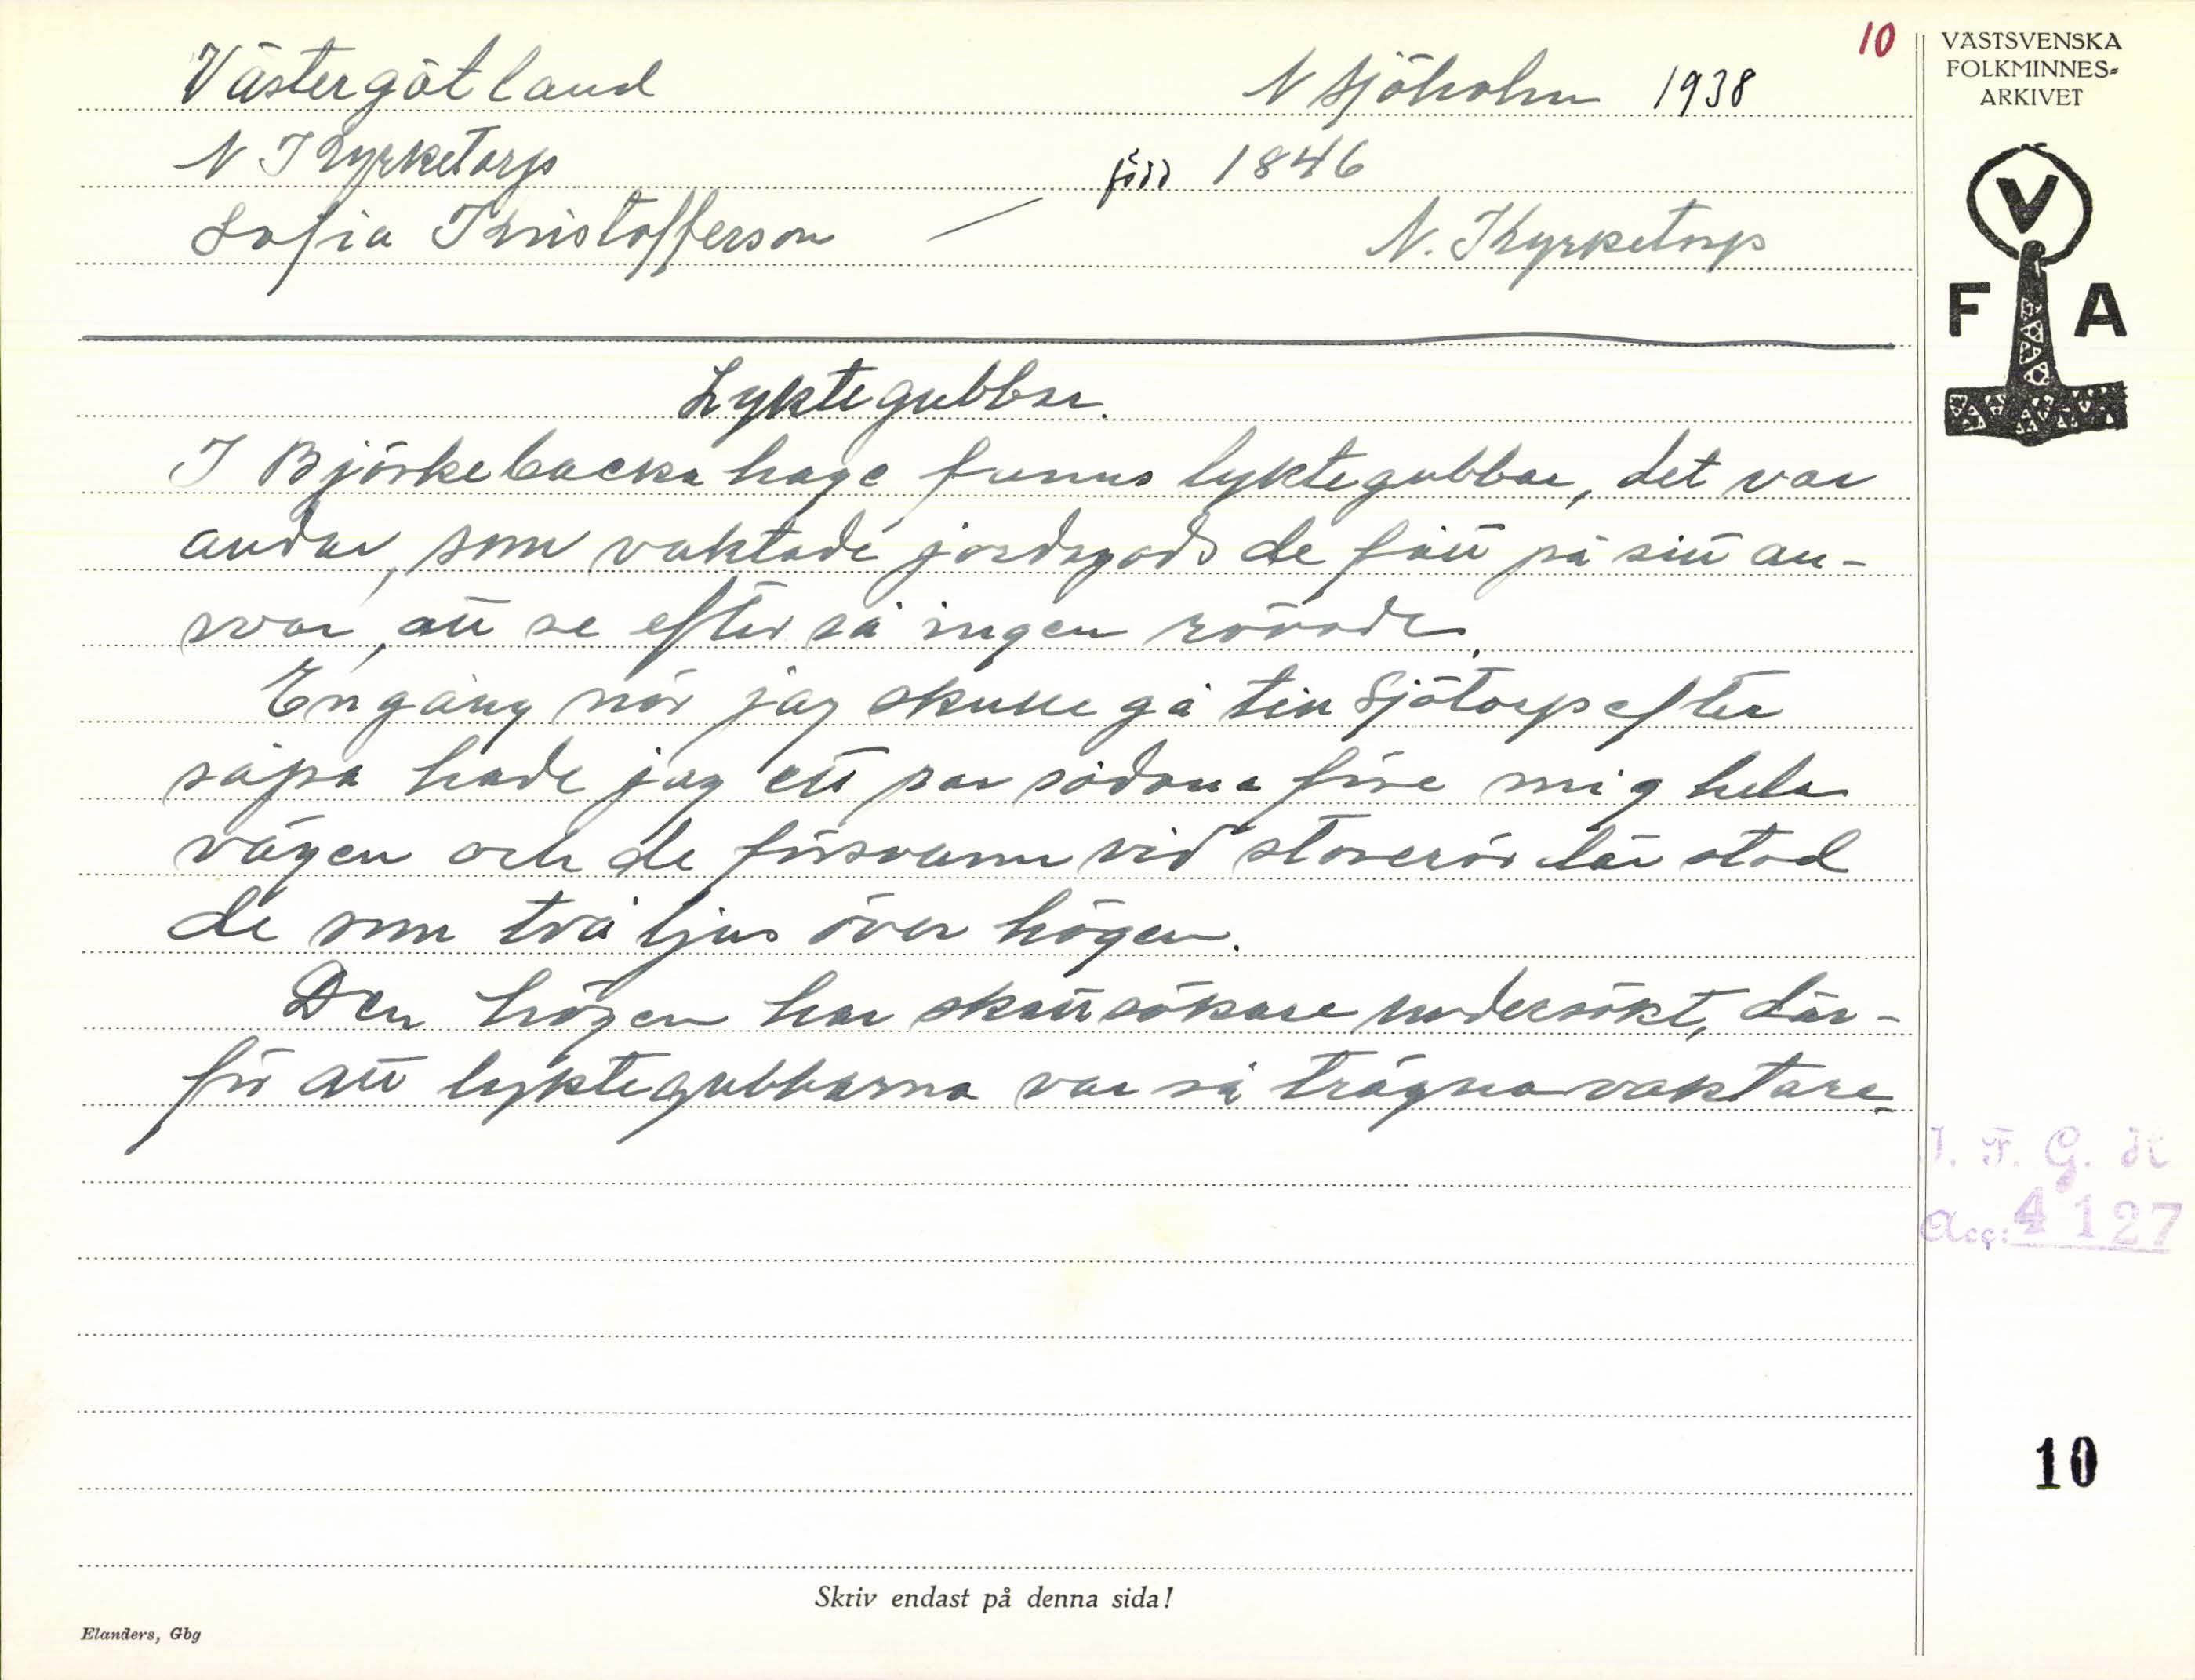 10
Västergötland N Sjöholm 1938
N Kyrketorp född 1846
Sofia Kristofferson — N. Kyrketorp
Lyktegubbar.
I Björkebacka hage funns lyktegubbar, det var
andar, som vaktade jordagods de fått på sitt an-
svar, att se efter så ingen rövade.
En gång när jag skulle gå till Sjötorp efter
såpa hade jag ett par sådana före mig hela
vägen och de försvann vid storerör där stod
de som två ljus över högen.
Den högen har skattsökare undersökt, där-
för att lyktegubbarna var så trägna vaktare.
Skriv endast på denna sida!
Elanders, Gbg
VÄSTSVENSKA
FOLKMINNES-
ARKIVET
V
F A
I. F. G. H
Acc: 4127
10